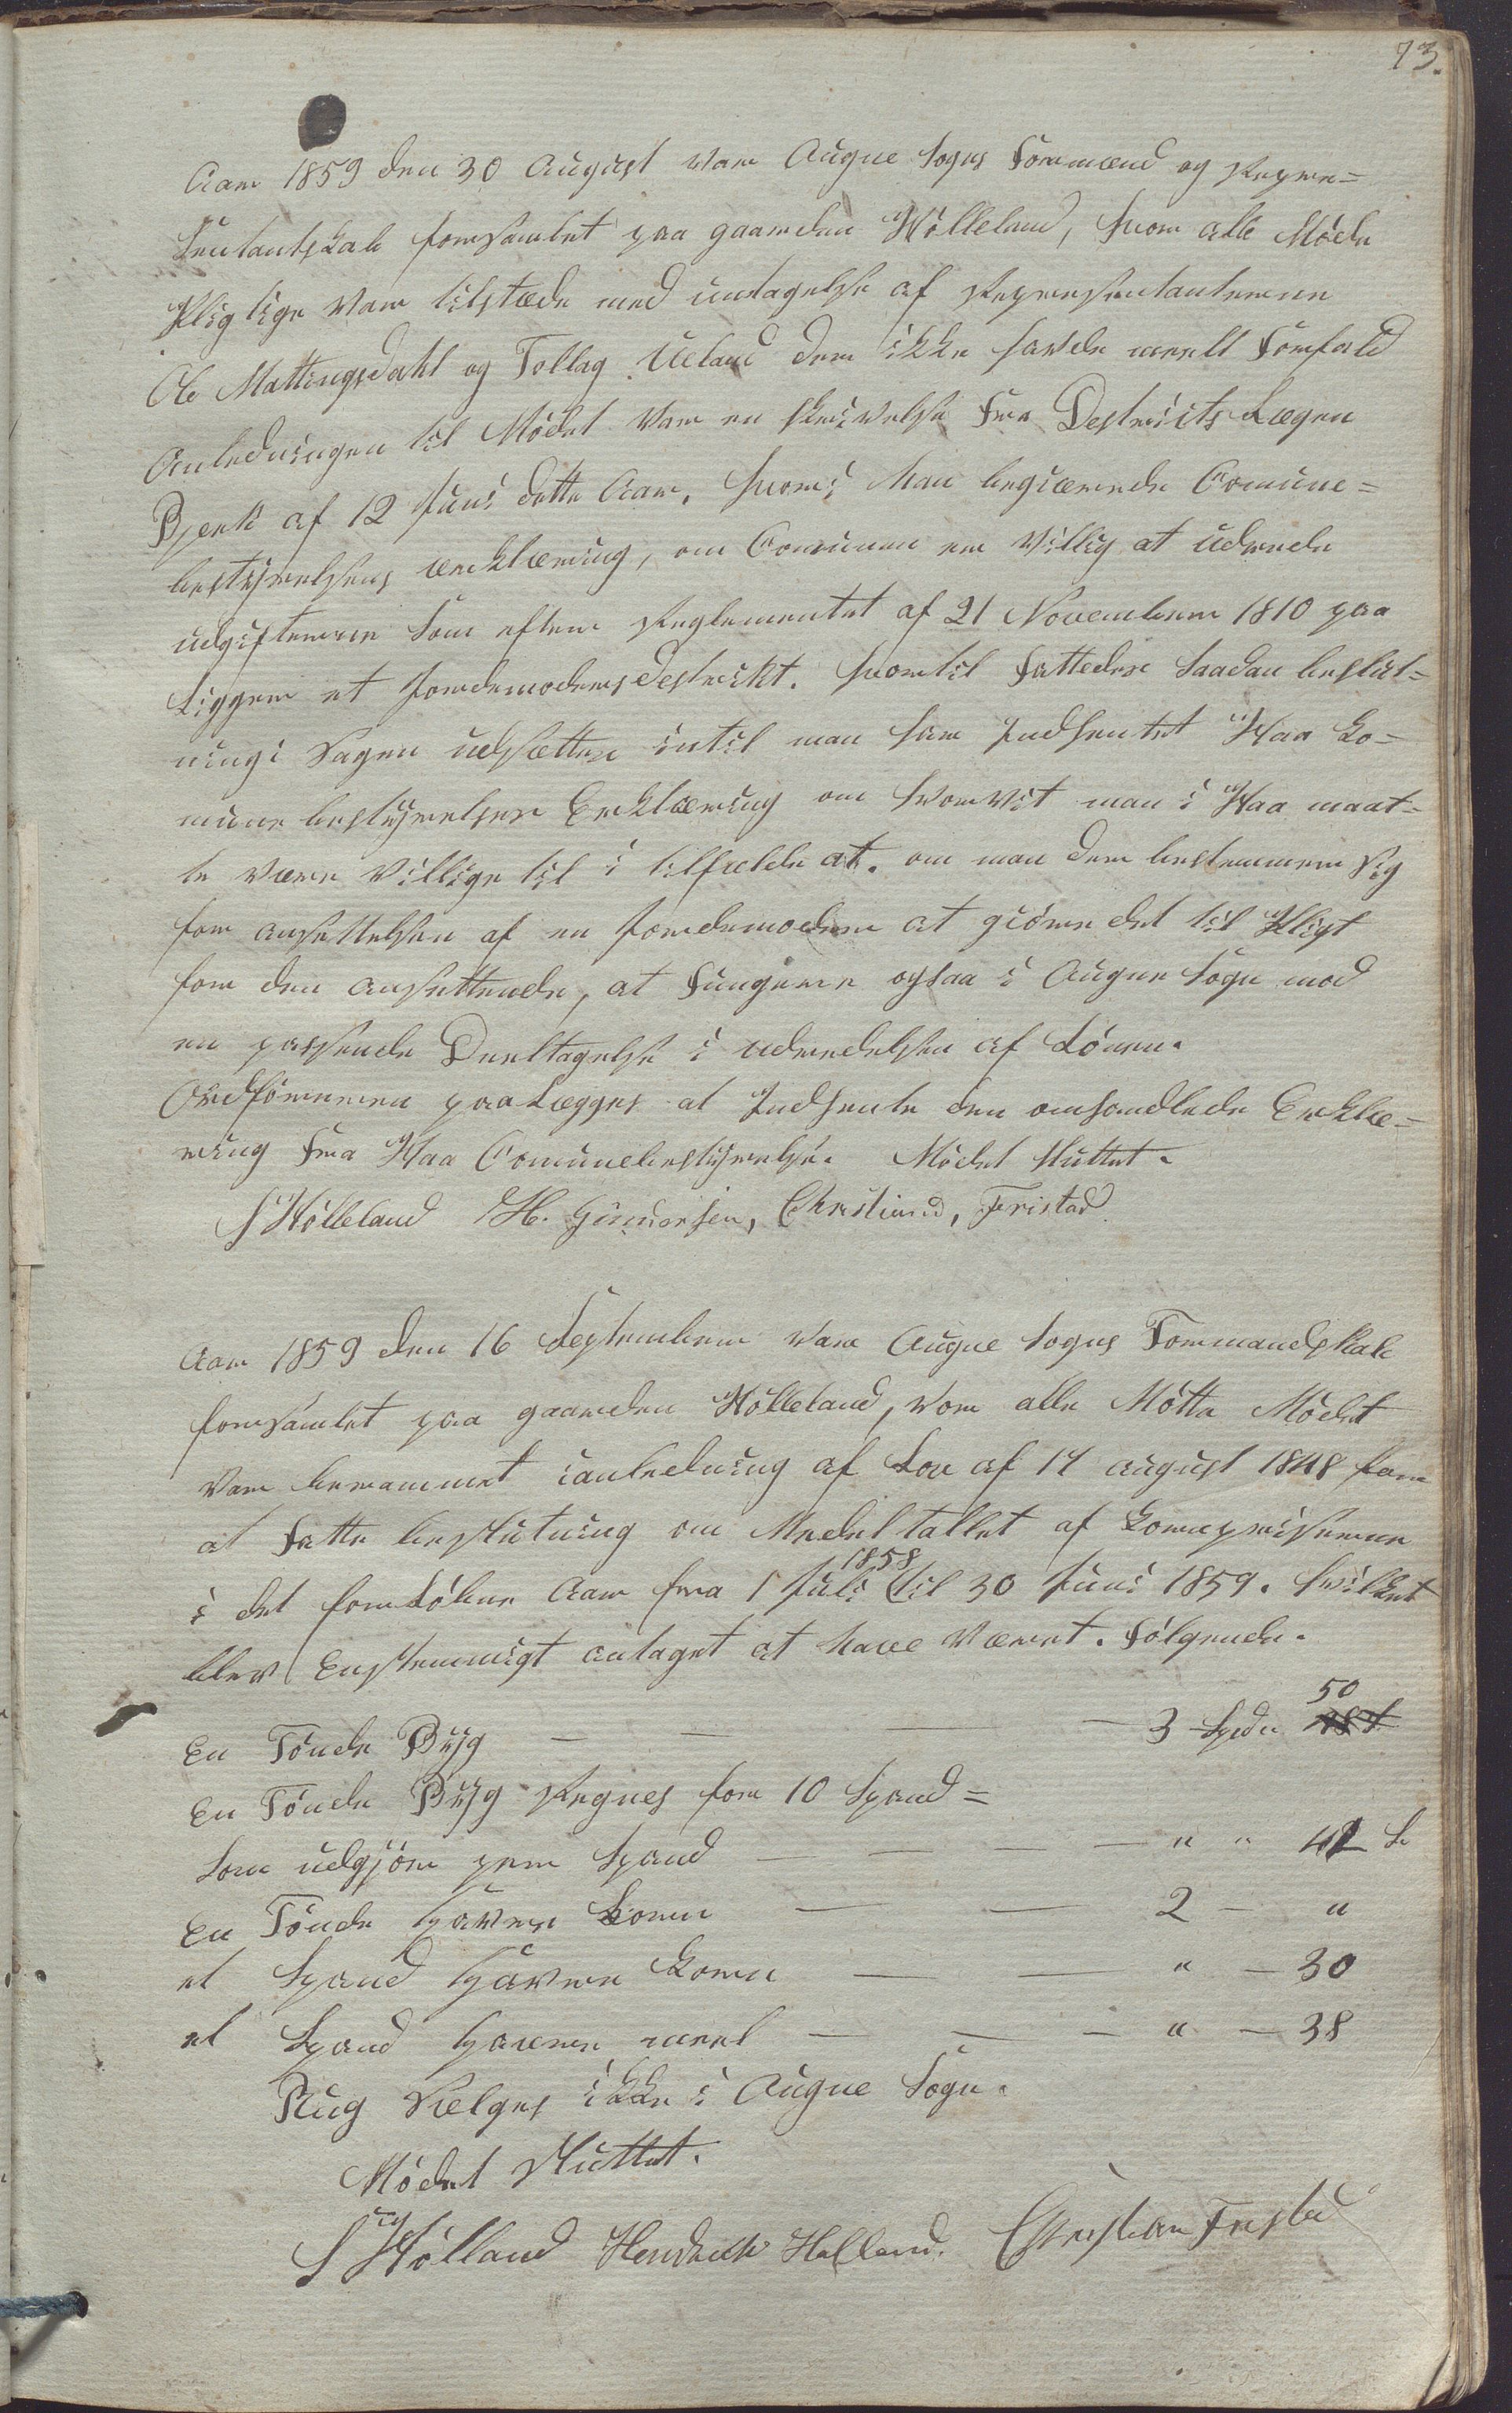 73.
Aar 1859 den 30 August var Augne Sogns Formænd og Repre=
sentantskab forsamlet paa gaarden Hölleland, hvor alle Möde
Pligtige var tilstæde med undtagelse af Repræsentanterne
Ole Mattingsdahl og Tollag Ueland der ikke havde meelt Forfald
Anledningen til Mödet var en skrivelse fra Destricts Lægen
Bjerk af 12 Juni dette Aar, hvori han begiærede Comune=
bestyrelsens ærklæring, om Comunen er villig at udrede
udgifterne som efter Reglementet af 21 November 1810 paa
Ligger et Jordemodersdestrikt. hvortil Fattedes saadan beslut=
ning: Sagen udsættes intil man har Indhentet Haa Ko=
mune bestyrelses Erklæring om hvorvit man i Haa maat=
te være villige til i tilfælde at. om man der bestemmer sig
for ansettelsen af en Jordemoder at giöre det til Pligt
for den ansettende, at fungere ogsaa i Augne Sogn mod
en passende Deeltagelse i udredelsen af Lönen.
Ordföreren paaLægges at Indhente den omhandlede Erklæ=
ring fra Haa Comunebestyrelse. Mödet sluttet.
S Hölleland H. Gunnersen, Christian, Fristad
Aar 1859 den 16 September var Augne Sogns Formandskab
forsamlet paa gaarden Hölleland, vor alle Mötte Mödet
var berammet ianledning af Lov af 14 august 1848 for
at fatte beslutning om Medeltallet af Kornpriserne
i det forlöbne Aar fra 1 Juli 1858 til 30 Juni 1859. hvilket
blev Enstemmigt antaget at have været. fölgende.
En Tönde Byg — — — — 3 Spdr 50
En Tönde Byg Regnes for 10 Spand=
som udgjör per Spand — — — — " " 42 s
En Tönde Haver Korn — — 2 – "
et Spand Haver Korn — — " – 30
et Spand Haver meel — — – " – 38
Rug Sælges ikke i Augne Sogn.
Mödet Sluttet.
S Hölland Hendrick Helland. Christian Fristad